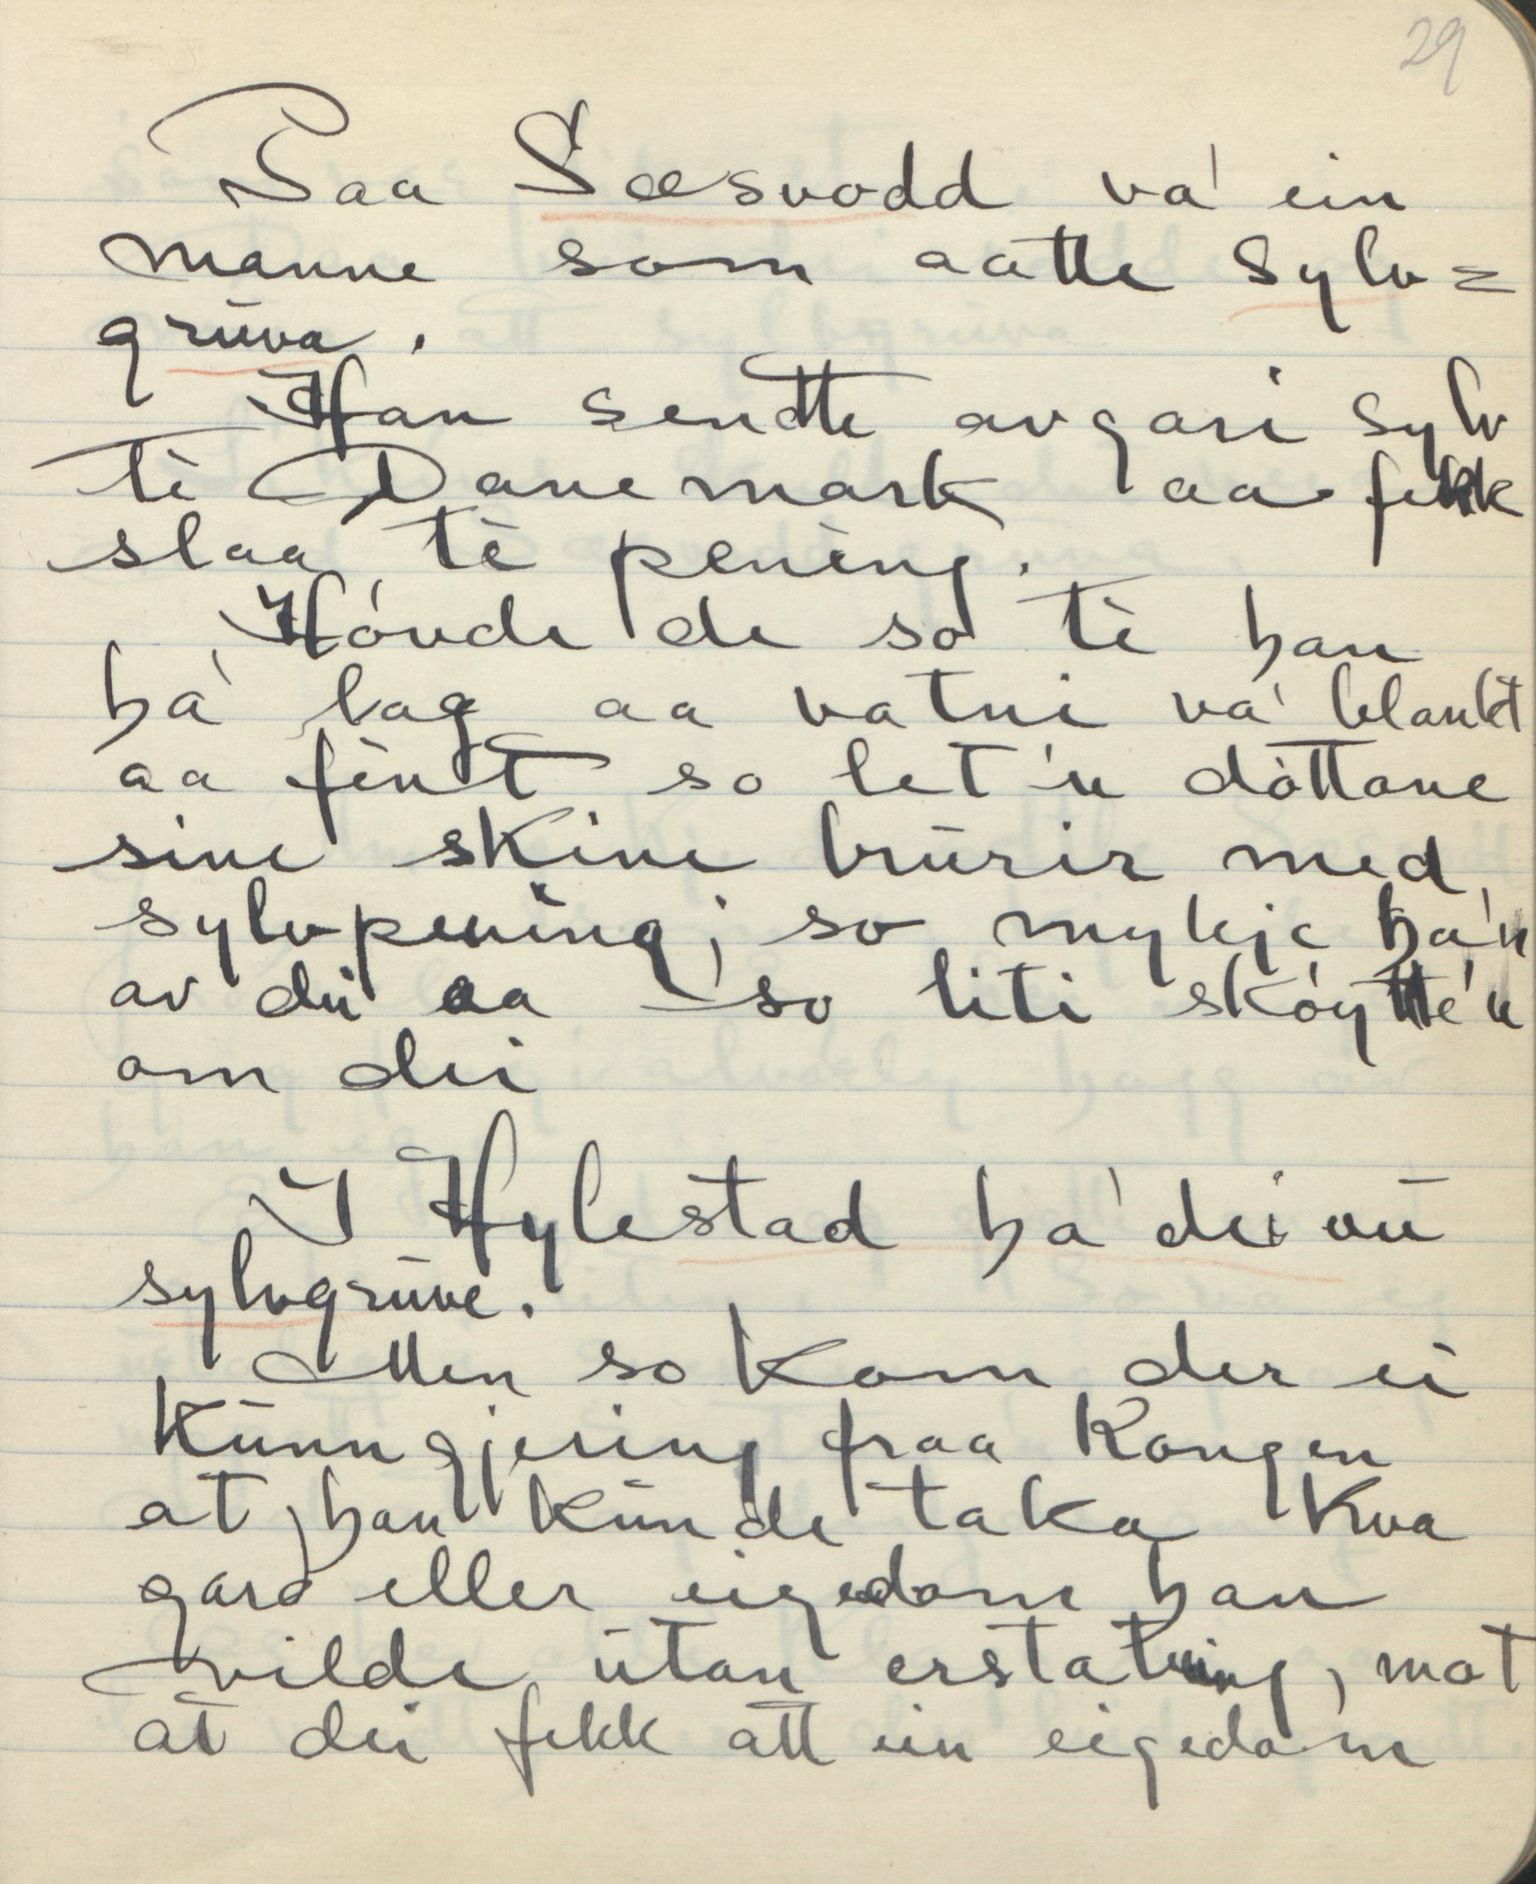 29
Paa Sæsvodd va' ein
manne som aatte sylv=
grūva.
Han sendte avgari sylv
tè Danemark aa fekk
slaa tè pening.
Hóvde de so tè han
ha' lag aa vatni va' blankt
aa fint so let 'n dòttane
sine skine brūrir med
sylvpening; so mykje ha'n
av dei aa so liti skóytte'n
om dei
I Hylestad ha' dei uū
sylvgrūve.
Men so kom der ei
Kūnngjering fraa Kongen
at han kūnde taka kva
gard eller eigedom han
vilde ūtan erstatning, mot
at dei fekk att ein eigedom